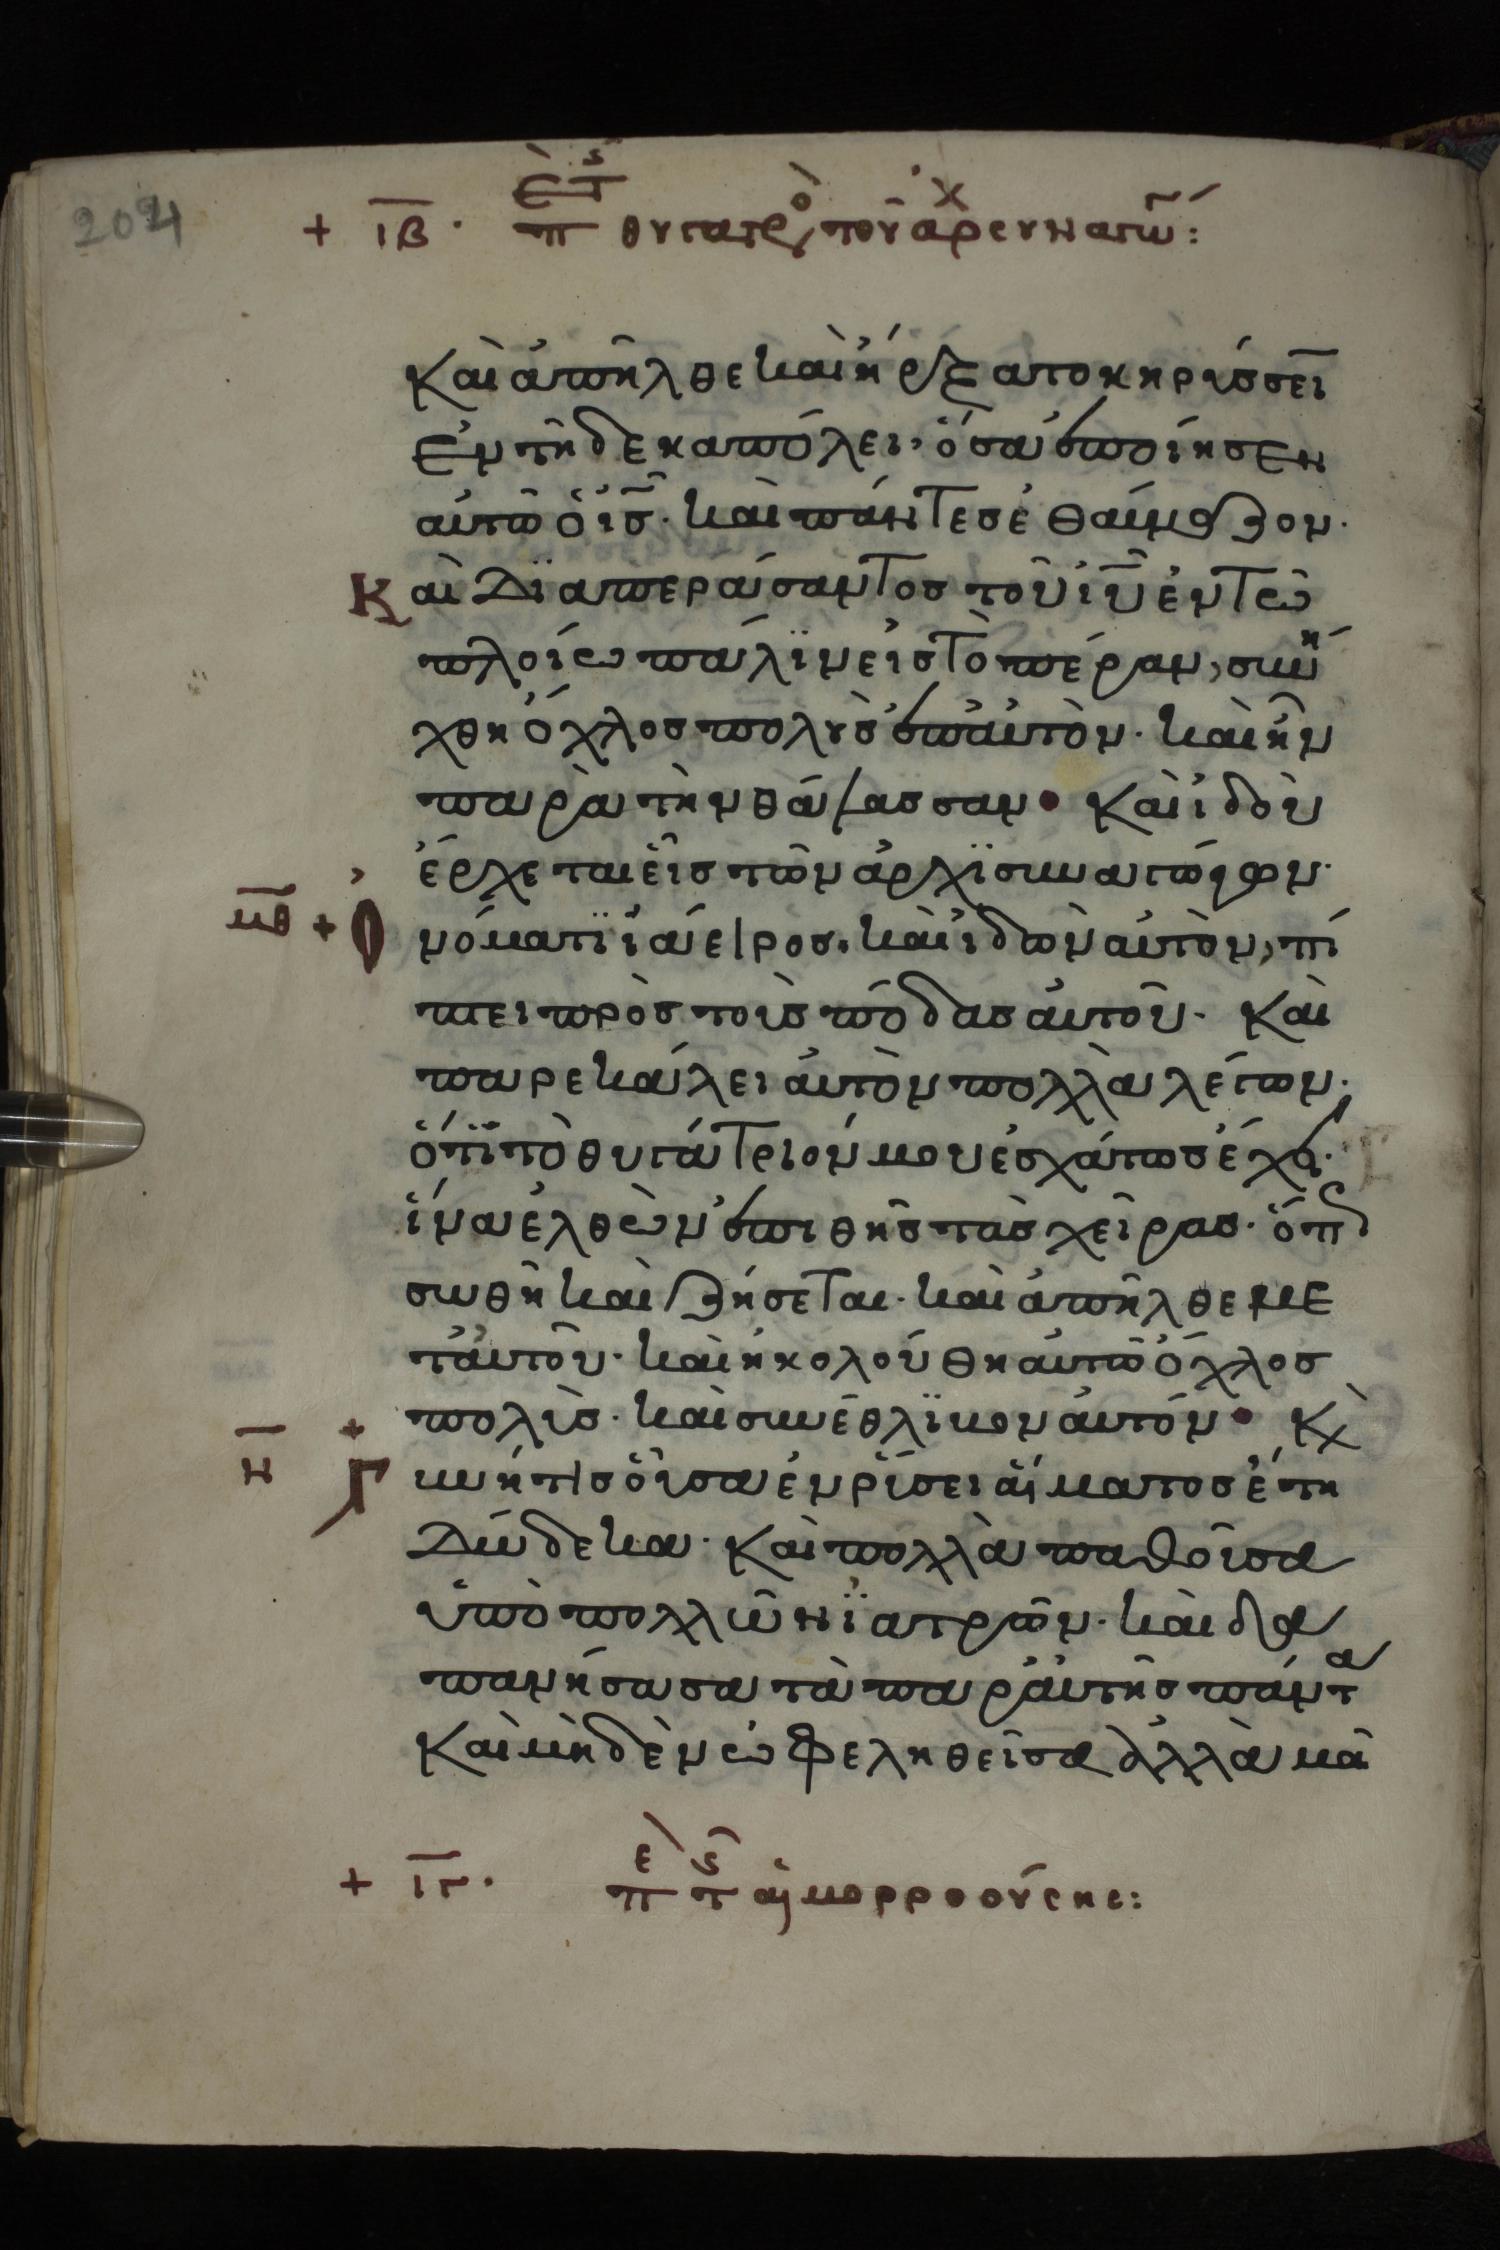 204
+ ιβ · πε τς θυγατρο του αρχ συναγω:
Καὶ ἀπῆλθε καὶ ἤρξατο κηρύσσειν
ἐν τῆ δεκαπόλει, ὅσα ἐποίησεν
αὐτῶ ὁ ις. καὶ πάντες ἐθαύμαζον.
Καὶ διαπεράσαντος τοῦ ιυ ἐν τῶ
πλοίω πάλϊν εἰς τὸ πέραν, συνή
χθη ὄχλος πολὺς ἐπ' αὐτὸν. καὶ ἦν
παρὰ τὴν θάλασσαν. Καὶ ἰδοὺ
ἔρχεται εἷς τῶν ἀρχϊσυναγώγων.
μθ + ὀνόματϊ ϊάειρος. καὶ ἰδὼν αὐτὸν, πί
πτει πρὸς τοὺς πόδας αὐτοῦ. Καὶ
παρεκάλει αὐτὸν πολλὰ λέγων.
ὅτϊ τὸ θυγάτριόν μου ἐσχάτως ἔχει.
ἵνα ἐλθὼν ἐπιθῆς τὰς χεῖρας. ὅπως
σωθῆ καὶ ζήσεται. καὶ ἀπῆλθε με
τ' αὐτοῦ. καὶ ἠκολούθη αὐτῶ ὄχλος
πολὺς. καὶ συνέθλϊβον αὐτόν. Κ
ν + γυνή τις οὖσα ἐν ῥύσει αἵματος ἔτη
δώδεκα. Καὶ πολλὰ παθοῦσα
ὑπὸ πολλῶν ϊατρῶν. καὶ δα
πανήσασα τὰ παρ' αὐτῆς πάντα
Καὶ μηδὲν ὠφεληθεῖσα ἀλλὰ μᾶ
+ ιγ · πε τς αἱμορροούσης: